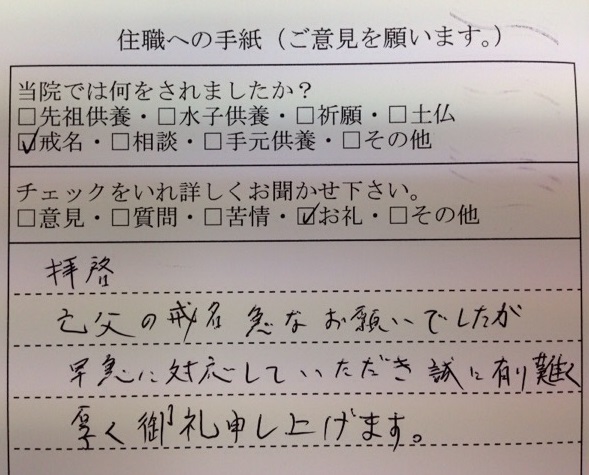 住職への手紙（ご意見を願います。）
当院では何をされましたか？
□先祖供養・□水子供養・□祈願・□土仏
☑戒名・□相談・□手元供養・□その他
チェックをいれ詳しくお聞かせ下さい。
□意見・□質問・□苦情・☑お礼・□その他
拝啓
亡父の戒名 急なお願いでしたが
早急に対応していただき誠に有り難く
厚く御礼申し上げます。